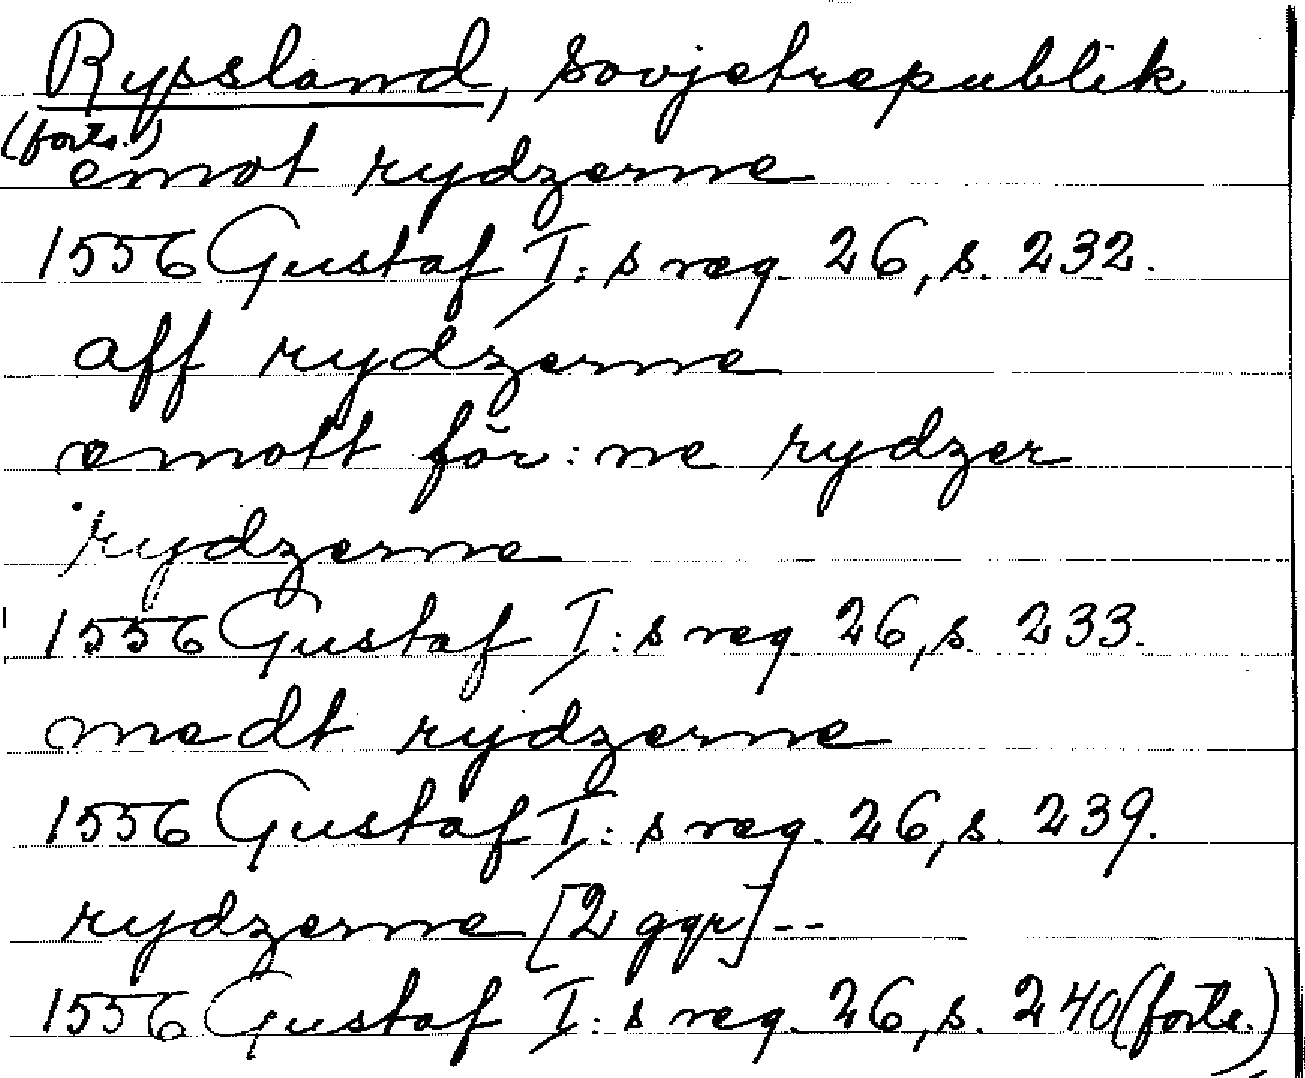 Ryssland, Sovjetrepublik
(forts.)
emot rydzerne
1556 Gustaf I:s reg. 26, s. 232.
aff rydzerne
emott för:ne rydzer
rydzerne
1556 Gustaf I:s reg. 26, s. 233.
medt rydzerne
1556 Gustaf I:s reg. 26, s. 239.
rydzerne [2 ggr] --
1556 Gustaf I:s reg. 26, s. 240 (forts.)